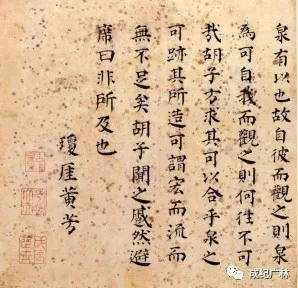 泉有以也故自彼而觀之則泉
為可自我而觀之則何往不可
哉胡子方求其可以合乎泉之
可跡其所造可謂宏而流而
無不足矣胡子聞之蹙然避
席曰非所及也
瓊厓黃芳
成纪广林